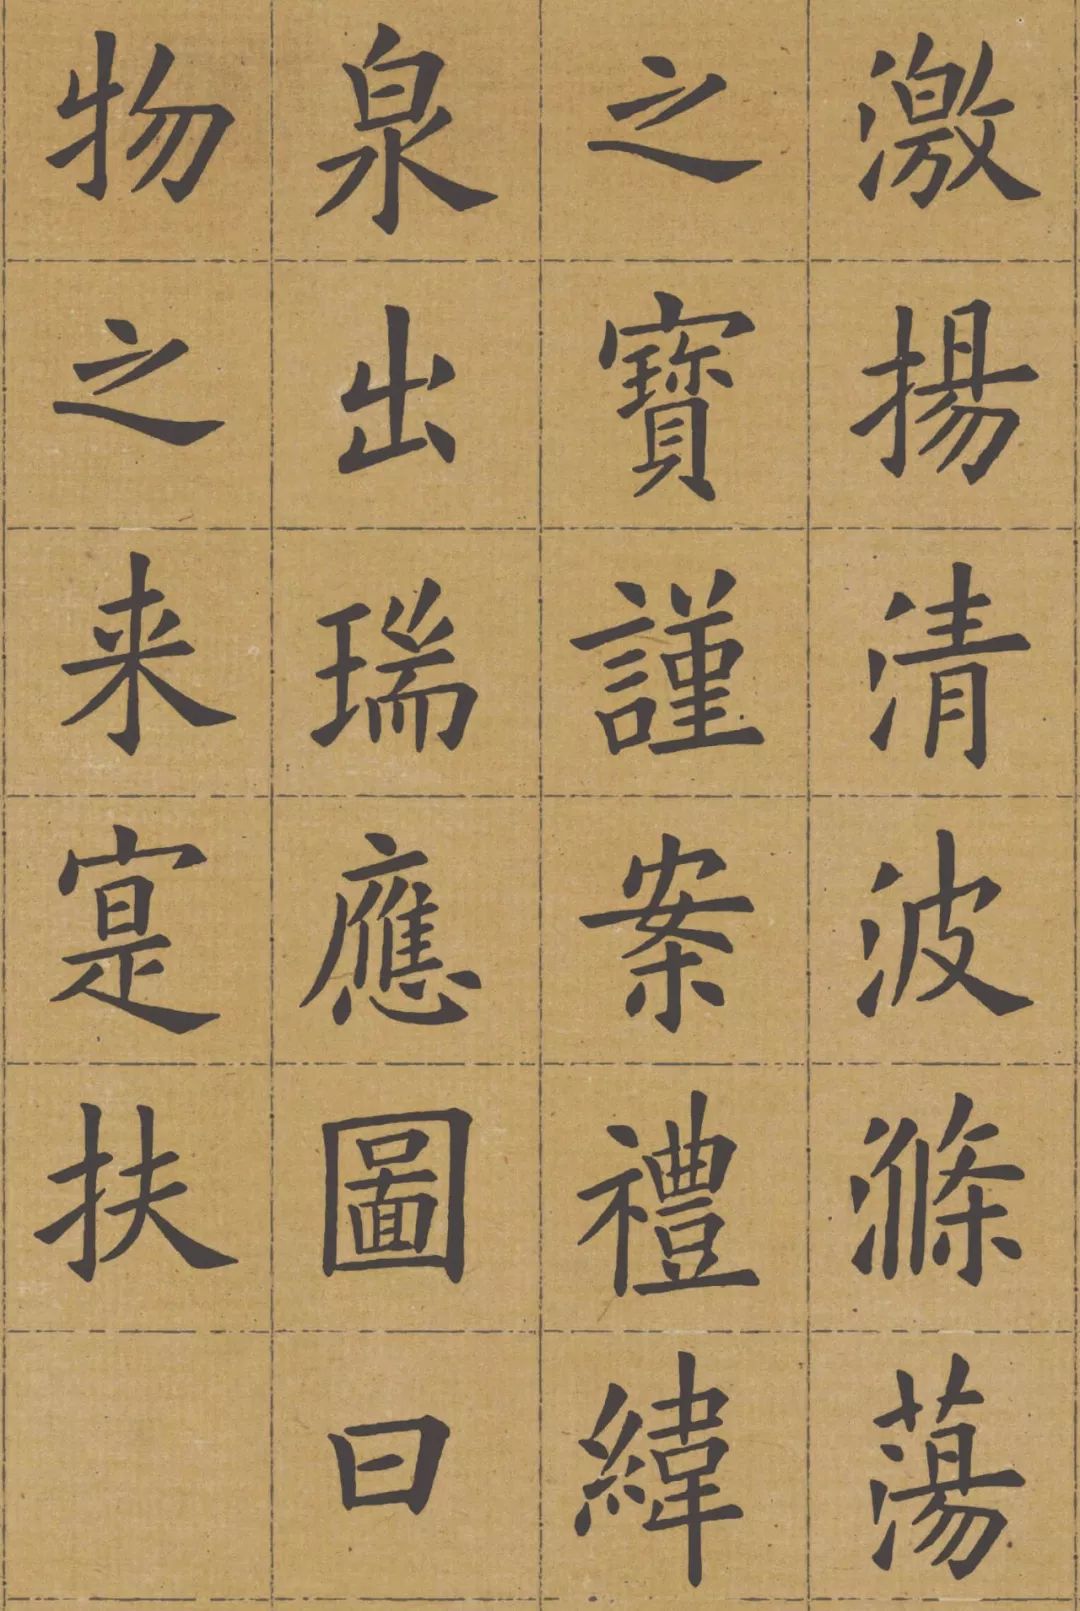 激揚清波滌蕩
之寶謹案禮緯
泉出瑞應圖曰
物之来寔扶